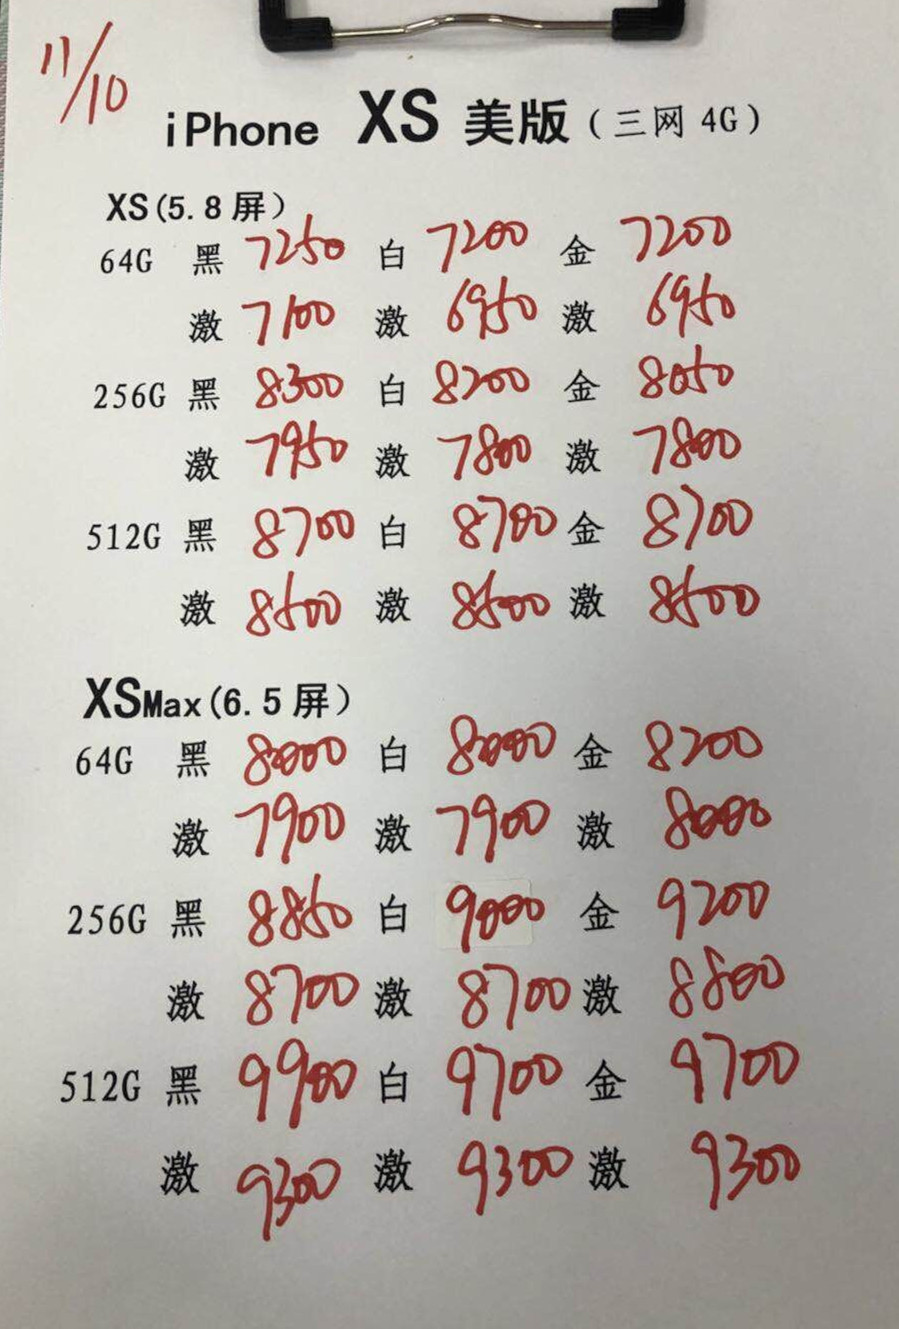 11/10
iPhone XS 美版（三网 4G）
XS(5.8 屏）
64G 黑 7250 白 7200 金 7200
激 7100 激 6950 激 6950
256G 黑 8300 白 8200 金 8050
激 7950 激 7800 激 7800
512G 黑 8700 白 8700 金 8700
激 8500 激 8500 激 8500
XSMax(6.5 屏）
64G 黑 8000 白 8000 金 8200
激 7900 激 7900 激 8000
256G 黑 8850 白 9000 金 9200
激 8700 激 8700 激 8800
512G 黑 9900 白 9700 金 9700
激 9300 激 9300 激 9300